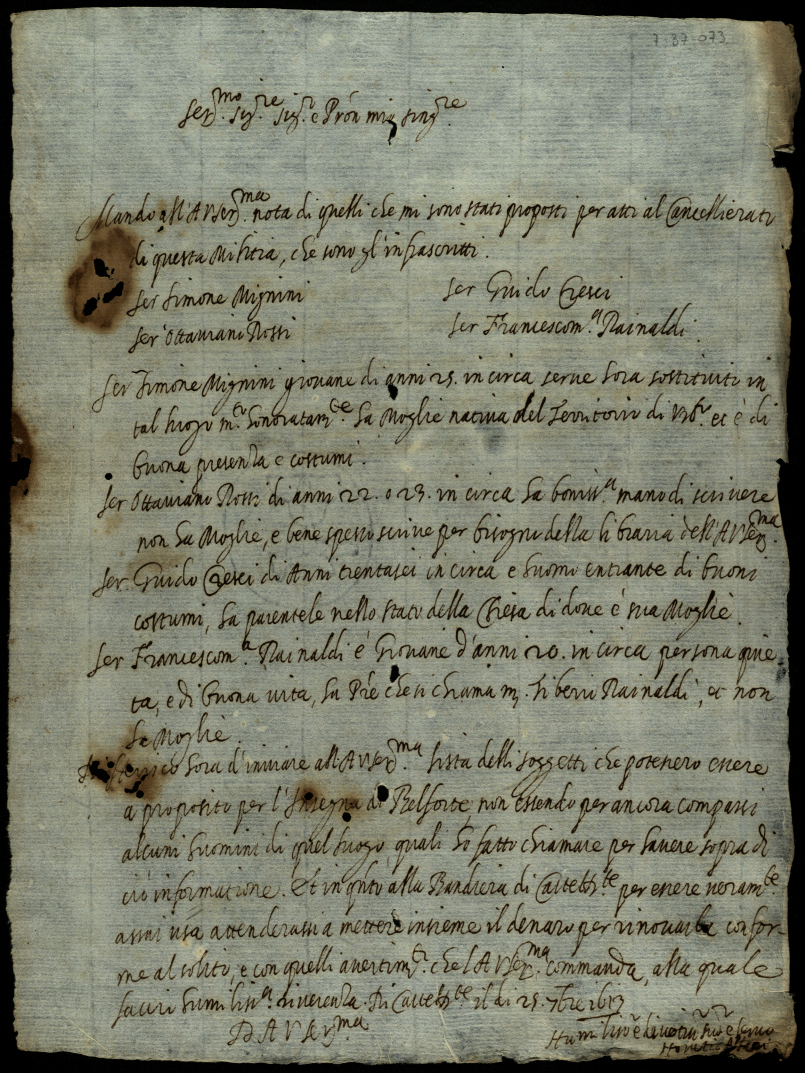 7-37-073
Ser.mo Sig.re Sig.r e Prón mio sing.re
Mando all'A V Ser.ma nota di quelli che mi sono stati proposti per atti al Cancellierato
di questa Militia, che sono gl'infrascritti.
Ser Simone Mignini
Ser Guido Cresci
Ser Ottaviano Rossi
Ser Francescom.a Rainaldi
Ser Simone Mignini giovane di anni 25. in circa serve hora sostituito in
tal luogo m.to honoratam.te ha Moglie nativa del Territorio di et è di
buona presenza e costumi.
Ser Ottaviano Rossi di anni 22. o 23. in circa ha boniss.a mano di scrivere
non ha Moglie, e bene spesso scrive per bisogno della libraria dell'A V Ser.ma
Ser Guido Cresci di Anni trentasei in circa e huomo entrante di buoni
costumi, ha parentele nello stato della Chiesa di dove é sua Moglie.
Ser Francescom.a Rainaldi é Giovane d'anni 20. in circa persona quie
ta, e di buona vita, ha Prê che si chiama m. Liberio Rainaldi, et non
ha Moglie.
hora d'inviare all'A V Ser.ma lista delli soggetti che potessero essere
a proposito per l'Insegna di Belforte, non essendo per ancora comparsi
alcuni huomini di quel luogo, quali ho fatto chiamare per havere sopra di
ciò informatione. Et in q.nto alla Bandiera di per essere veram.te
assai usa attenderassi a mettere insieme il denaro per rinovarla confor-
me al solito, e con quelli avertim.ti che l'A V Ser.ma commanda, alla quale
faccio humiliss.a riverenza. Di il di 25. 7bre 1613
D A V Ser.ma
Hum